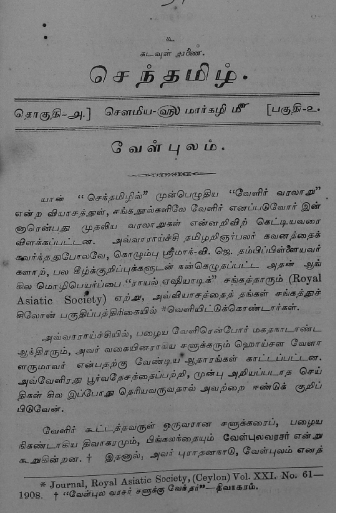 உ
கடவுள் துணை.
செந்தமிழ்.
தொகுதி-அ.] சௌமிய-௵ மார்கழி௴ [பகுதி-உ.
வேள்புலம்.
யான் "செந்தமிழில்" முன்பெழுதிய "வேளிர் வரலாறு"
என்ற வியாசத்துள், சங்கநூல்களிலே வேளிர் எனப்படுவோர் இன்
னாரென்பது முதலிய வரலாறுகள் என்னறிவிற் கெட்டியவரை
விளக்கப்பட்டன. அவ்வாராய்ச்சி தமிழறிஞர்பலர் கவனத்தைக்
கவர்ந்ததுபோலவே, கொழும்பு ஸ்ரீமாந்-வி. ஜெ. தம்பிப்பிள்ளையவர்
களாற், பல கீழ்க்குறிப்புக்களுடன் நன்கெழுதப்பட்ட அதன் ஆங்
கில மொழிபெயர்ப்பை "ராயல் ஏஷியாடிக்" சங்கத்தாரும் (Royal
Asiatic Society) ஏற்று, அவ்வியாசத்தைத் தங்கள் சங்கத்துச்
சிலோன் பகுதிப்பத்திரிகையில் *வெளியிட்டுக்கொண்டார்கள்.
அவ்வாராய்ச்சியில், பழைய வேளிரென்போர் மகதநாடாண்ட
ஆந்திரரும், அவர் வகையினராய சளுக்கரும் ஹொய்சள வேளா
ளருமாவர் என்பதற்கு வேண்டிய ஆதாரங்கள் காட்டப்பட்டன.
அவ்வேளிரது பூர்வதேசத்தைப்பற்றி, முன்பு அறியப்படாத செய்
திகள் சில இப்போது தெரியவருவதால் அவற்றை ஈண்டுக் குறிப்
பிடுவேன்.
வேளிர் கூட்டத்தவருள் ஒருவரான சளுக்கரைப், பழைய
நிகண்டாகிய திவாகரமும், பிங்கலந்தையும் வேள்புலவரசர் என்று
கூறுகின்றன. † இதனால், அவர் புராதனநாடு, வேள்புலம் எனத்
* Journal, Royal Asiatic Society, (Ceylon) Vol. XXI. No. 61—
1908. † "வேள்புல வரசர் சளுக்கு வேந்தர்"—திவாகரம்.